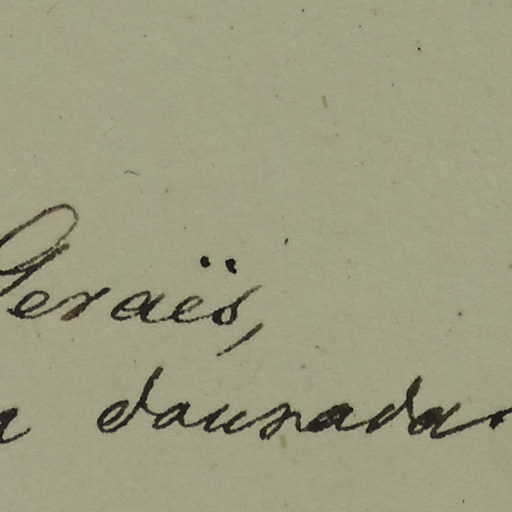 Geraës,
a dourada